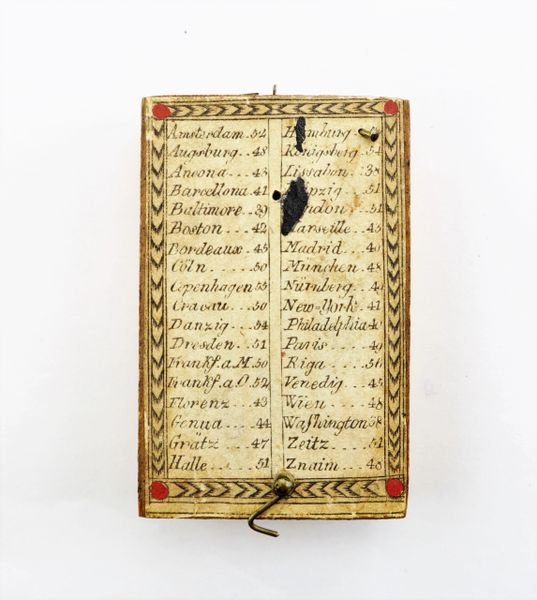 Amsterdam. 52
Augsburg.. 48
Ancona ... 43
Barcellona 41
Baltimore.. 39
Boston ... 42
Bordeaux .. 45
Cöln ..... 50
Copenhagen 55
Cracau ... 50
Danzig ... 54
Dresden .. 51
Frankf. a. M. 50
Frankf. a. O. 52
Florenz ... 43
Genua .... 44
Grätz .... 47
Halle ..... 51
Königsberg
Lissabon. 38
51
51
Marseille .. 43
Madrid .. 40
München .. 48
Nürnberg .. 49
New-York . 41
Philadelphia 40
Paris .... 49
Riga .... 56
Venedig ... 45
Wien .... 48
Waſhington 38
Zeitz .... 51
Znaim ... 48